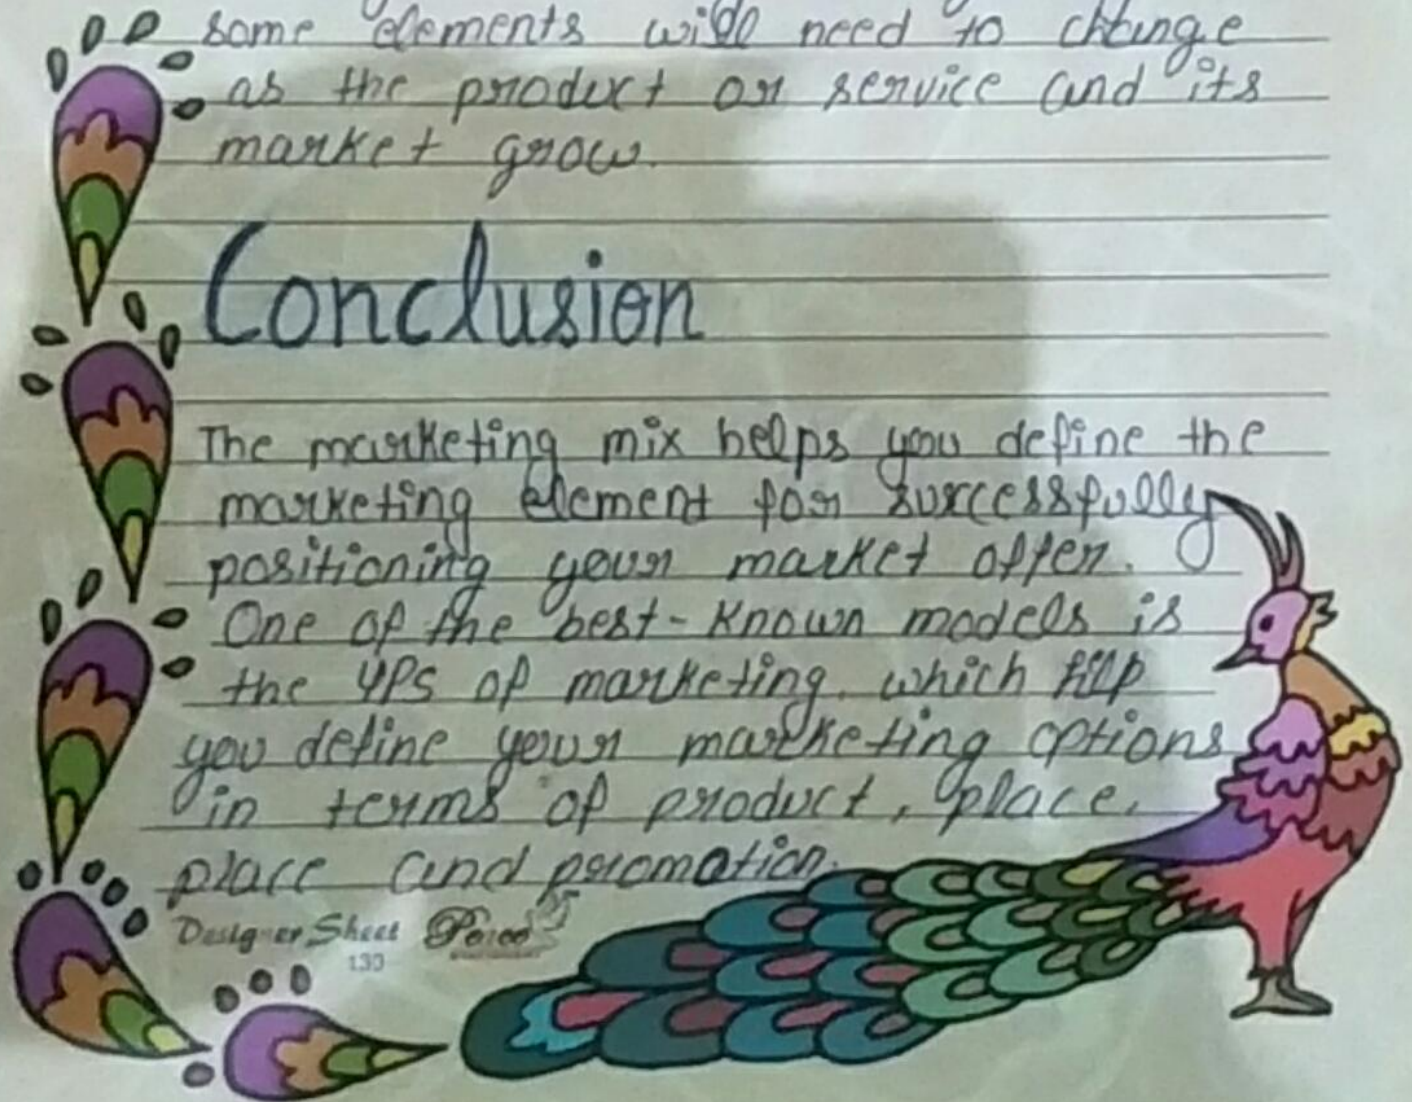 some elements will need to change
as the product or service and its
market grow.
Conclusion
The marketing mix helps you define the
marketing element for successfully
positioning your market offer.
One of the best-known models is
the 4Ps of marketing. which help
you define your marketing options
in terms of product, place,
place and promotion.
Designer Sheet
130